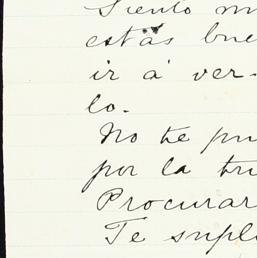 Siento m
estás bue
ir á ver-
lo.
No te pu
por la tri
Procurar
Te supli